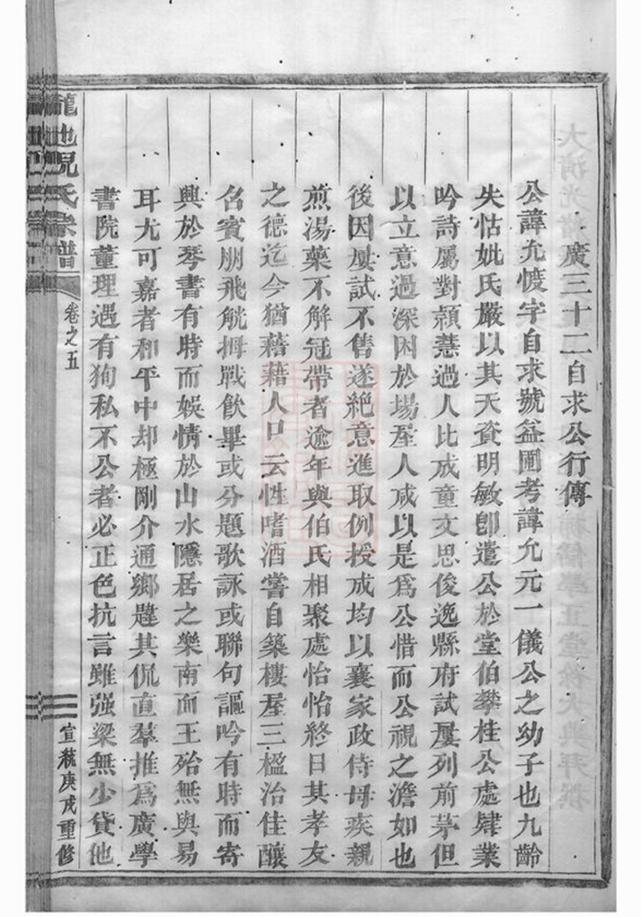 廣三十二自求公行傳
公諱允愷字自求號益圃考諱允元一儀公之幼子也九齡
失怙妣氏嚴以其天資明敏卽遣公於堂伯攀桂公處肄業
吟詩屬對頴慧過人比成童文思俊逸縣府試屢列前茅但
以立意過深困於塲屋人咸以是爲公惜而公視之澹如也
後因屢試不售遂絕意進取例授成均以襄家政侍母疾親
煎湯藥不解冠帶者逾年與伯氏相聚處怡怡終日其孝友
之德迄今猶藉藉人口云性嗜酒嘗自築樓屋三楹治佳釀
名賓朋飛觥拇戰飲畢或分題歌詠或聯句謳吟有時而寄
興於琴書有時而娛情於山水隱居之樂南面王殆無與易
耳尤可嘉者和平中却極剛介通鄉韙其侃直羣推爲廣學
書院董理遇有狥私不公者必正色抗言雖强梁無少貸他
龍池祝氏宗譜
卷之五
宣統庚戌重修